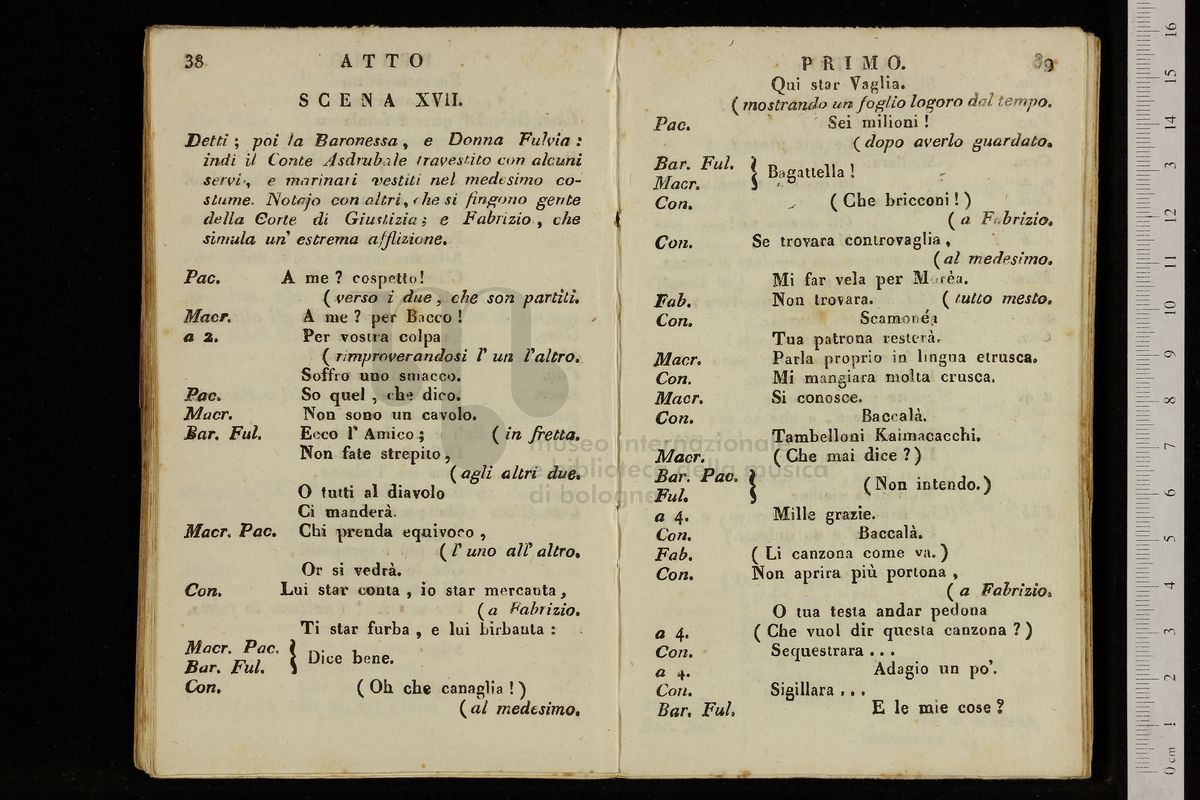 38
ATTO
SCENA XVII.
Detti ; poi la Baronessa, e Donna Fulvia :
indi il Conte Asdrubale travestito con alcuni
servi, e marinari vestiti nel medesimo co-
stume. Notajo con altri, che si fingono gente
della Corte di Giustizia ; e Fabrizio, che
simula un' estrema afflizione.
Pac. A me ? cospetto!
( verso i due, che son partiti.
Macr. A me ? per Bacco !
a 2. Per vostra colpa
( rimproverandosi l' un l'altro.
Soffro uno smacco.
Pac. So quel , che dico.
Macr. Non sono un cavolo.
Bar. Ful. Ecco l' Amico ; ( in fretta.
Non fate strepito,
( agli altri due.
O tutti al diavolo
Ci manderà.
Macr. Pac. Chi prenda equivoco ,
( l' uno all' altro.
Or si vedrà.
Con. Lui star conta , io star mercanta ,
( a Fabrizio.
Ti star furba , e lui birbanta :
Macr. Pac.
Bar. Ful. } Dice bene.
Con. ( Oh che canaglia ! )
( al medesimo.
PRIMO.
39
Qui star Vaglia.
( mostrando un foglio logoro dal tempo.
Pac. Sei milioni !
( dopo averlo guardato.
Bar. Ful.
Macr. } Bagattella !
Con. ( Che bricconi ! )
( a Fabrizio.
Con. Se trovara controvaglia ,
( al medesimo.
Mi far vela per Moréa.
Fab. Non trovara. ( tutto mesto.
Con. Scamonéa
Tua patrona resterà.
Macr. Parla proprio in lingua etrusca.
Con. Mi mangiara molta crusca.
Macr. Si conosce.
Con. Baccalà.
Tambelloni Kaimacacchi.
Macr. ( Che mai dice ? )
Bar. Pac.
Ful. } ( Non intendo. )
a 4. Mille grazie.
Con. Baccalà.
Fab. ( Li canzona come va. )
Con. Non aprira più portona ,
( a Fabrizio.
O tua testa andar pedona
a 4. ( Che vuol dir questa canzona ? )
Con. Sequestrara . . .
a 4. Adagio un po'.
Con. Sigillara . . .
Bar. Ful. E le mie cose ?
museo internazionale
e biblioteca della musica
di bologna
0 cm 1 2 3 4 5 6 7 8 9 10 11 12 13 14 15 16